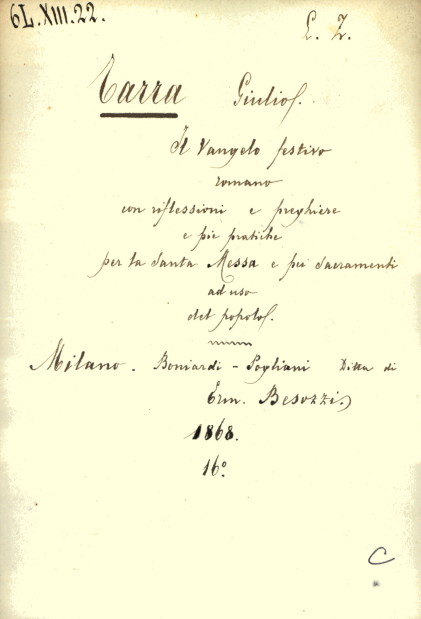 6L.XIII.22.
L. Z.
Tarra Giulio.
Il Vangelo festivo
romano
con riflessioni e preghiere
e pie pratiche
per la Santa Messa e pei Sacramenti
ad uso
del popolo.
Milano. Boniardi - Pogliani Ditta di
Erm. Besozzi.
1868.
16°
C